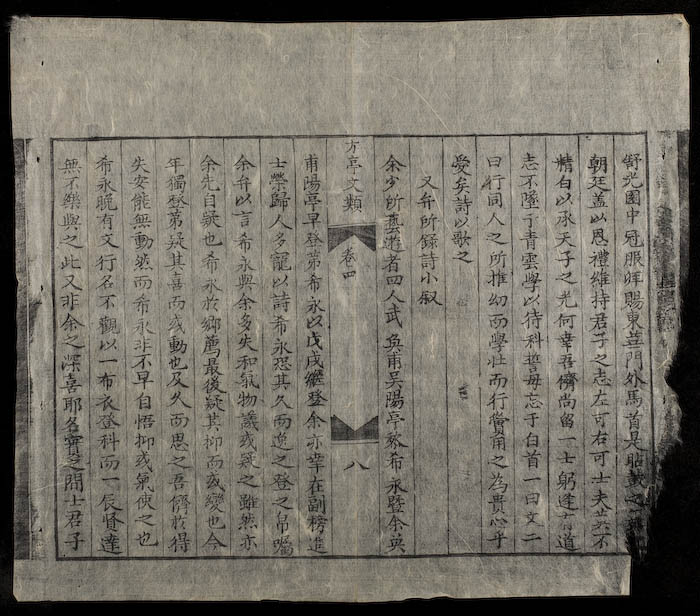 舒光園中冠服拜賜東華門外馬首是
朝廷盖以恩禮維持君子之志左可右可士夫
精白以承天子之光何幸吾儕尚留一士躬逢有道
志不墜于青雲學以待科誓毋忘于白首一曰文二
曰行同人之所推幼而學壯而行實用之為貴心乎
愛矣詩以歌之
又弁所録詩小叙
余少所蓺遊者四人武奐甫吴陽亭裕希永暨余英
方亭文類
卷四
八
甫陽亭早登第希永以戊戌繼登余亦幸在副榜進
士榮歸人多寵以詩希永恐其久而逸之登之帛囑
余弁以言希永與余多失和氣物議或疑之雖然亦
余先自疑也希永於鄉薦最後疑其抑而或變也今
年獨登第疑其喜而或動也及久而思之吾儕於得
失安能無動然而希永非不早自悟抑或氣使之也
希永晚有文行名不觀以一布衣登科而一辰賢達
無不樂與之此又非余之深喜耶名實之間士君子